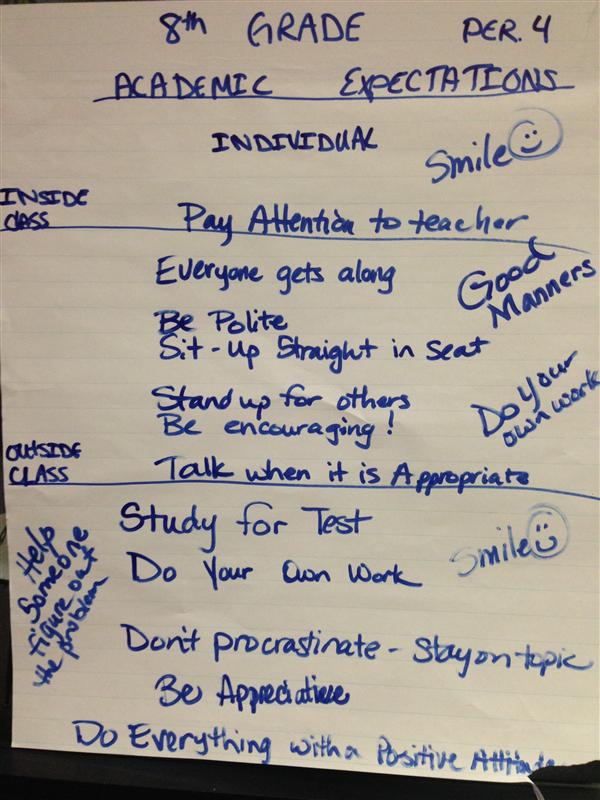 8th GRADE PER. 4
ACADEMIC EXPECTATIONS
INDIVIDUAL
Smile
INSIDE CLASS
Pay Attention to teacher
Everyone gets along
Good Manners
Be Polite
Sit-up Straight in seat
Do Your own work
Stand up for others
Be encouraging!
OUTSIDE CLASS
Talk when it is Appropriate
Study for Test
Smile
Do Your Own Work
Help Someone Figure out the problem
Don't procrastinate - Stay on topic
Be Appreciative
Do Everything with a Positive Attitude